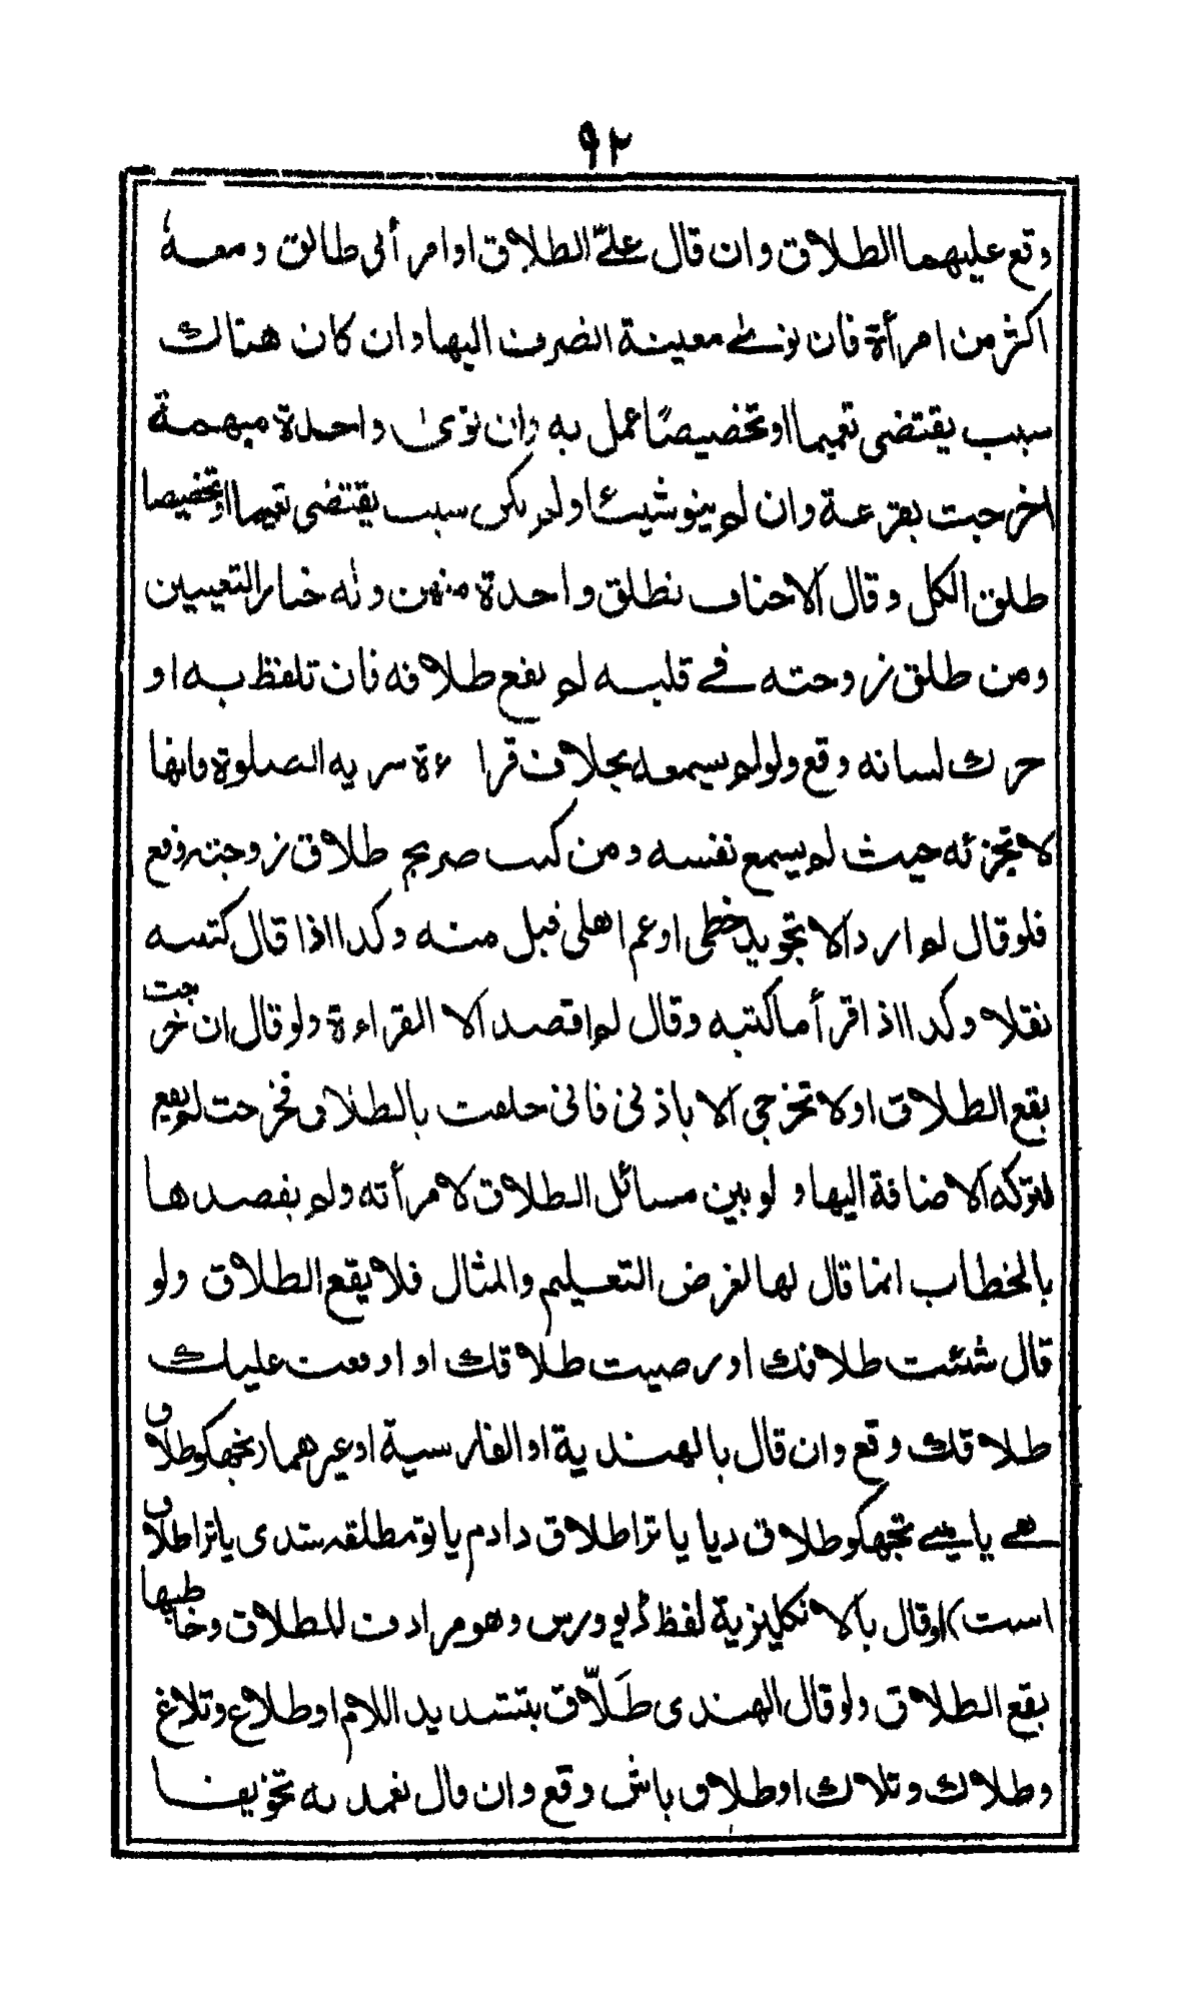 ٩٢
وقع عليهما الطلاق وان قال علىّ الطلاق او امرأتي طالق ومعه
اكثر من امرأة فان نوى معينة انصرف اليها وان كان هناك
سبب يقتضى تعميما او تخصيصًا عمل به وان نوىٰ واحدة مبهمة
اخرجت بقرعة وان لم ينو شيئا ولم يكن سبب يقتضى تعميما او تخصيصا
طلق الكل وقال الاحناف تطلق واحدة منهن وله خيار التعيين
ومن طلق زوجته في قلبه لم يقع طلاقه فان تلفظ به او
حرك لسانه وقع ولو لم يسمعه بخلاف قراءة سرية الصلوة فانها
لا تجزئه حيث لم يسمع نفسه ومن كتب صريح طلاق زوجته وقع
فلو قال لم ارد الا تجويد خطى او غم اهلى قبل منه وكذا اذا قال كتبته
نقلا وكذا اذ اقرأ ما كتبه وقال لم اقصد الا القراءة ولو قال ان خرجت
يقع الطلاق او لا تخرجى الا باذنى فانى حلفت بالطلاق فخرجت لم يقع
لتركه الاضافة اليها ولو بين مسائل الطلاق لامرأته ولم يقصدها
بالخطاب انما قال لها لغرض التعليم والمثال فلا يقع الطلاق ولو
قال شئت طلاقك او رضيت طلاقك او اوقعت عليك
طلاقك وقع وان قال بالهندية او الفارسية او غيرهما (تجهكو طلاق
هے يا ميں نے تجهكو طلاق ديا يا ترا طلاق دادم يا تو مطلقه شدى يا ترا طلاق
است) او قال بالانكليزية لفظ ڈيوورس وهو مرادف للطلاق وخاطبها
يقع الطلاق ولو قال الهندى طَلّاق بتشديد اللام او طلاع وتلاغ
وطلاك وتلاك او طلاق باش وقع وان قال تعمدته تخويفا